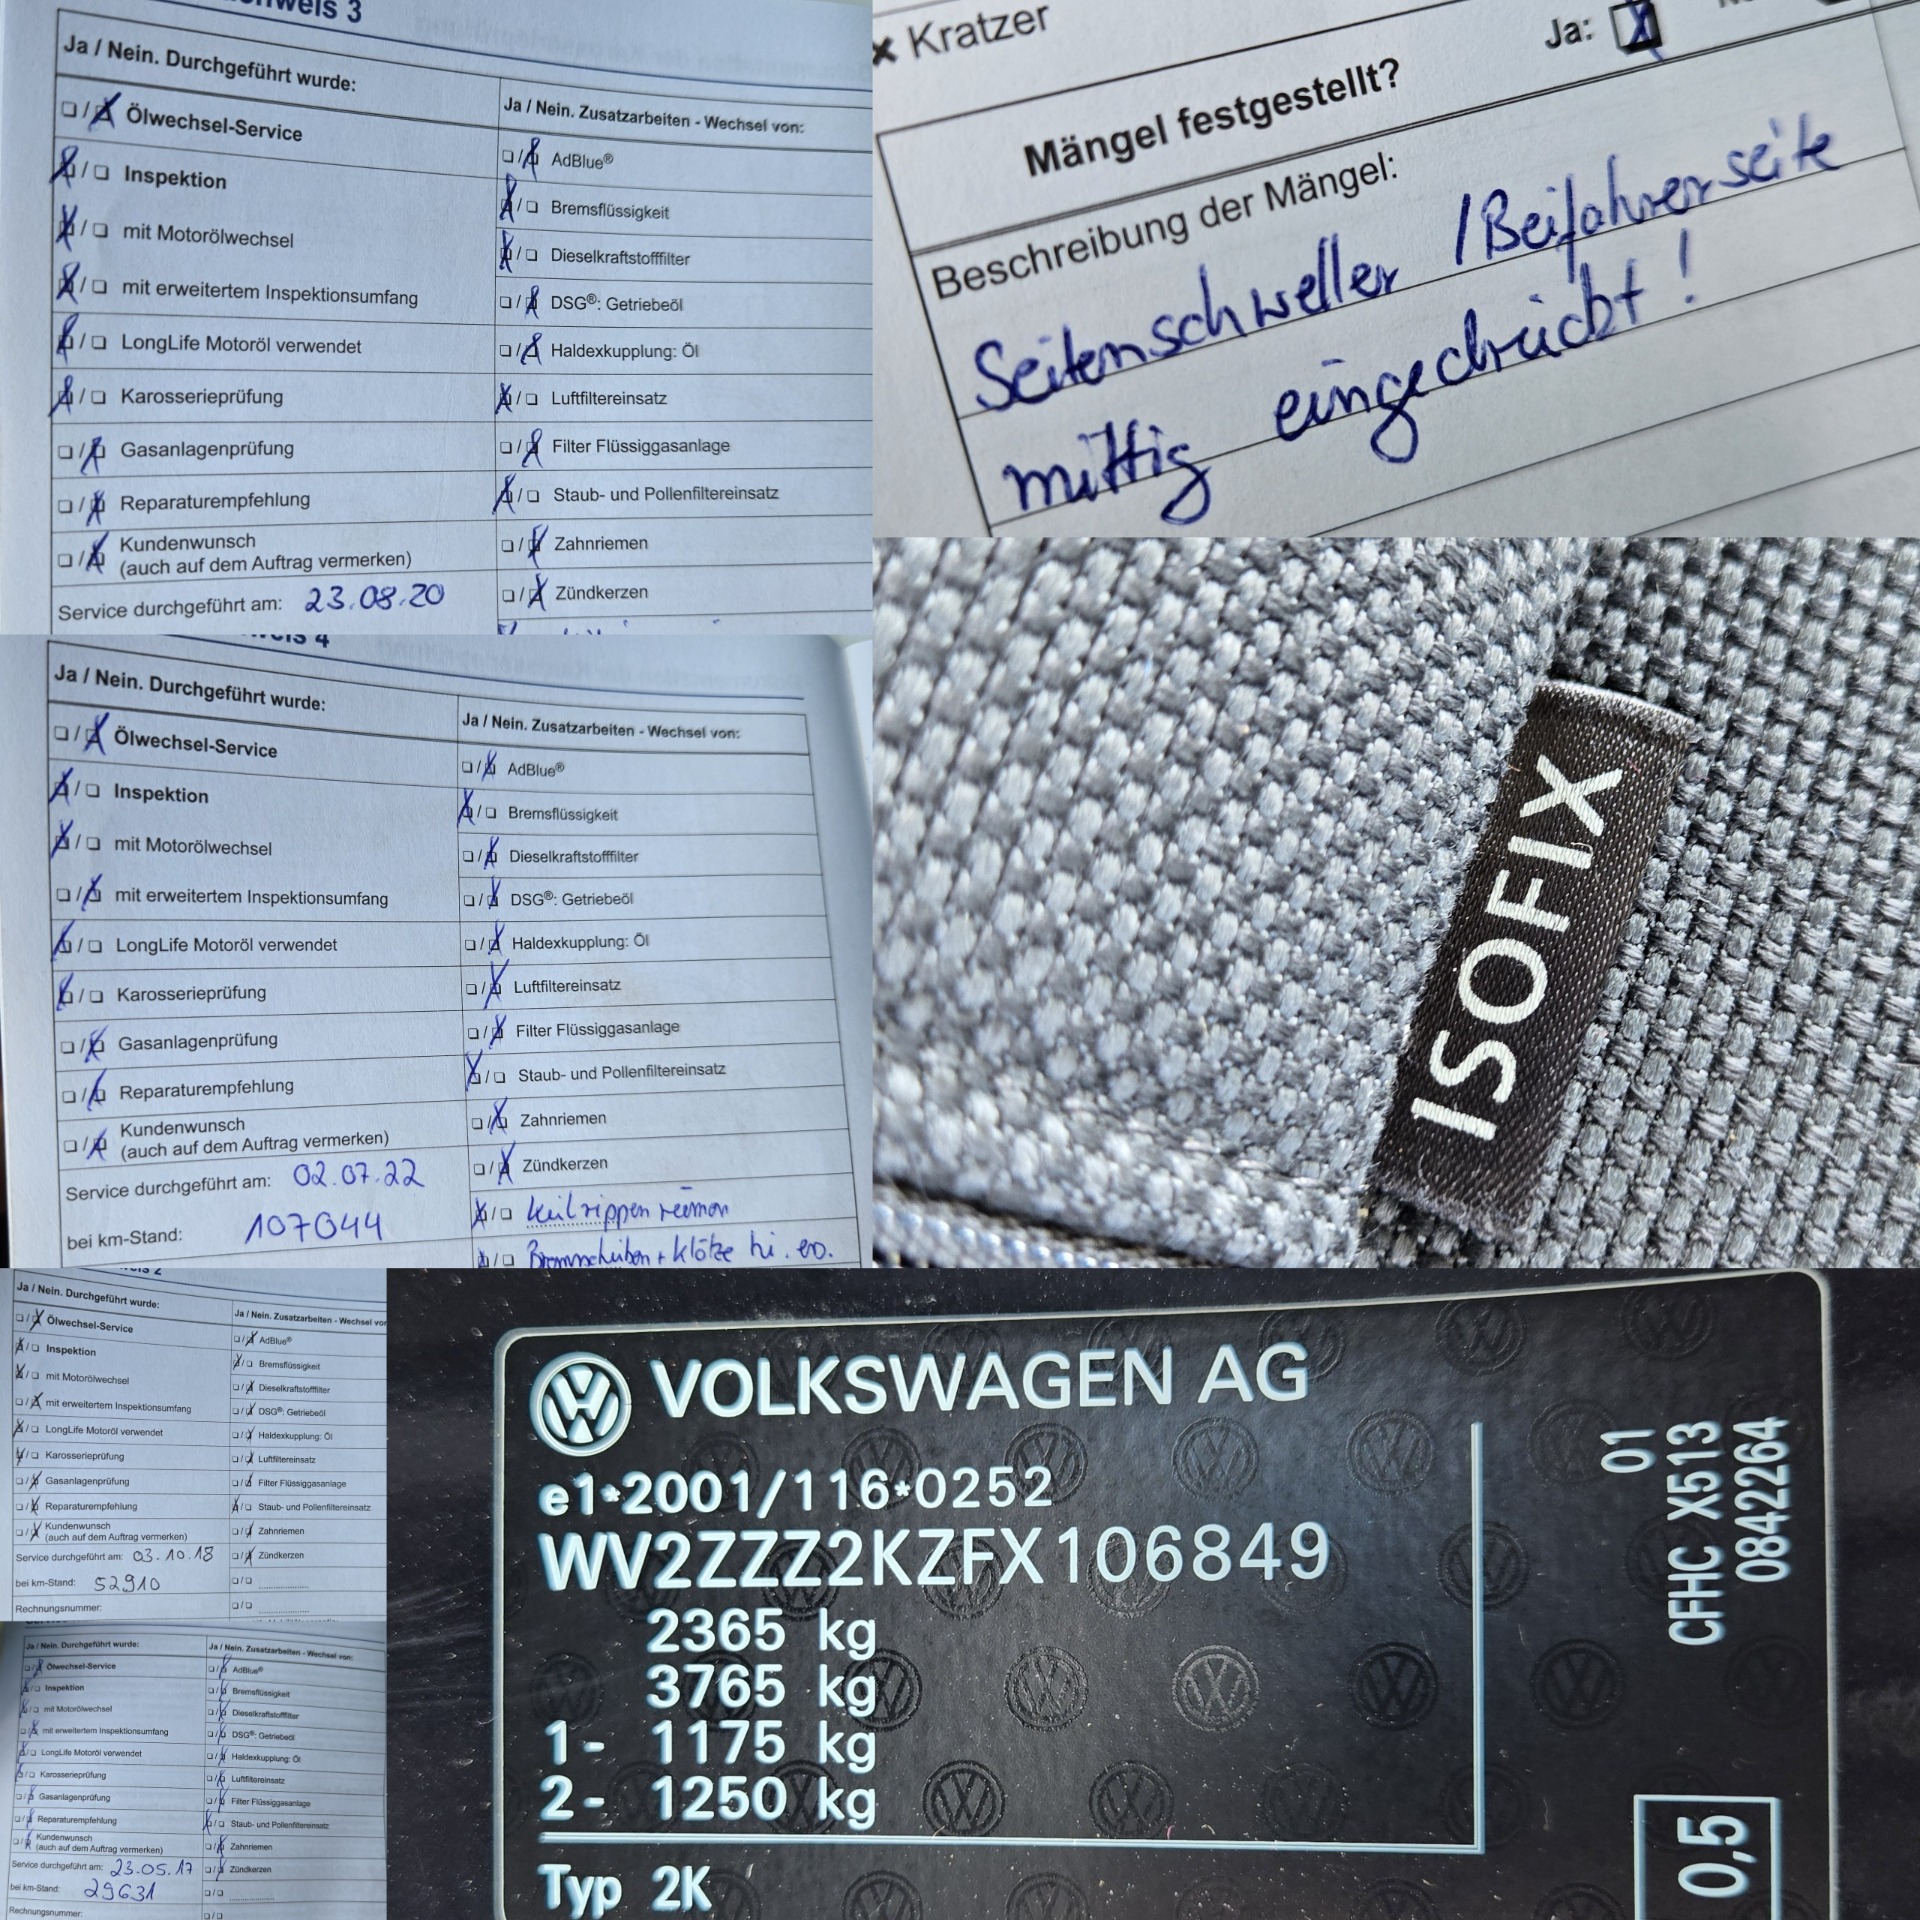 3
Ja / Nein. Durchgeführt wurde:
Ölwechsel-Service
Inspektion
mit Motorölwechsel
mit erweitertem Inspektionsumfang
LongLife Motoröl verwendet
Karosserieprüfung
Gasanlagenprüfung
Reparaturempfehlung
Kundenwunsch
(auch auf dem Auftrag vermerken)
Service durchgeführt am: 23.08.20
Ja / Nein. Zusatzarbeiten - Wechsel von:
AdBlue®
Bremsflüssigkeit
Dieselkraftstofffilter
DSG®: Getriebeöl
Haldexkupplung: Öl
Luftfiltereinsatz
Filter Flüssiggasanlage
Staub- und Pollenfiltereinsatz
Zahnriemen
Zündkerzen
× Kratzer
Ja:
Mängel festgestellt?
Beschreibung der Mängel:
Seitenschweller / Beifahrerseite
mittig eingedrückt!
ISOFIX
4
Ja / Nein. Durchgeführt wurde:
Ölwechsel-Service
Inspektion
mit Motorölwechsel
mit erweitertem Inspektionsumfang
LongLife Motoröl verwendet
Karosserieprüfung
Gasanlagenprüfung
Reparaturempfehlung
Kundenwunsch
(auch auf dem Auftrag vermerken)
Service durchgeführt am: 02.07.22
bei km-Stand: 107044
Ja / Nein. Zusatzarbeiten - Wechsel von:
AdBlue®
Bremsflüssigkeit
Dieselkraftstofffilter
DSG®: Getriebeöl
Haldexkupplung: Öl
Luftfiltereinsatz
Filter Flüssiggasanlage
Staub- und Pollenfiltereinsatz
Zahnriemen
Zündkerzen
Keilrippenriemen
Bremsscheiben + Klötze hi. er.
2
Ja / Nein. Durchgeführt wurde:
Ölwechsel-Service
Inspektion
mit Motorölwechsel
mit erweitertem Inspektionsumfang
LongLife Motoröl verwendet
Karosserieprüfung
Gasanlagenprüfung
Reparaturempfehlung
Kundenwunsch
(auch auf dem Auftrag vermerken)
Service durchgeführt am: 03.10.18
bei km-Stand: 52910
Rechnungsnummer:
Ja / Nein. Zusatzarbeiten - Wechsel vor
AdBlue®
Bremsflüssigkeit
Dieselkraftstofffilter
DSG®: Getriebeöl
Haldexkupplung: Öl
Luftfiltereinsatz
Filter Flüssiggasanlage
Staub- und Pollenfiltereinsatz
Zahnriemen
Zündkerzen
Ja / Nein. Durchgeführt wurde:
Ölwechsel-Service
Inspektion
mit Motorölwechsel
mit erweitertem Inspektionsumfang
LongLife Motoröl verwendet
Karosserieprüfung
Gasanlagenprüfung
Reparaturempfehlung
Kundenwunsch
(auch auf dem Auftrag vermerken)
Service durchgeführt am: 23.05.17
bei km-Stand: 29631
Rechnungsnummer:
Ja / Nein. Zusatzarbeiten - Wechsel von:
AdBlue®
Bremsflüssigkeit
Dieselkraftstofffilter
DSG®: Getriebeöl
Haldexkupplung: Öl
Luftfiltereinsatz
Filter Flüssiggasanlage
Staub- und Pollenfiltereinsatz
Zahnriemen
Zündkerzen
VOLKSWAGEN AG
e1*2001/116*0252
WV2ZZZ2KZFX106849
2365 kg
3765 kg
1- 1175 kg
2- 1250 kg
Typ 2K
01
CFHC X513
0842264
0,5